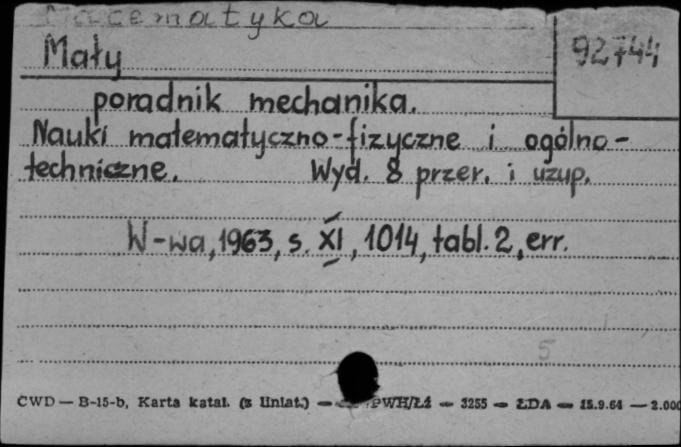 Matematyka
Mały
92744
poradnik mechanika.
Nauki matematyczno-fizyczne i ogólno-
techniczne. Wyd. 8 przer. i uzup.
W-wa, 1963, s. XI, 1014, tabl. 2, err.
5
CWD — B-15-b, Karta katal. (z liniat.) — PWH/Łź — 3255 — ŁDA — 15.9.64 — 2.000